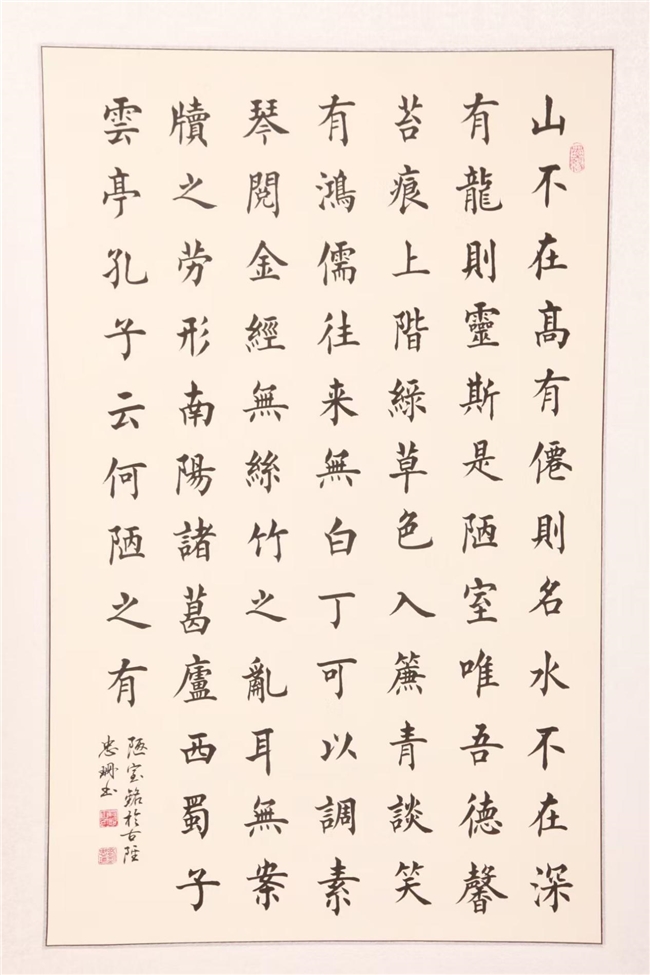 山不在髙有僊則名水不在深
有龍則靈斯是陋室唯吾德馨
苔痕上階綠草色入簾青談笑
有鴻儒往来無白丁可以調素
琴閱金經無絲竹之亂耳無案
牘之劳形南陽諸葛廬西蜀子
雲亭孔子云何陋之有
陋室銘於古
忠珊书